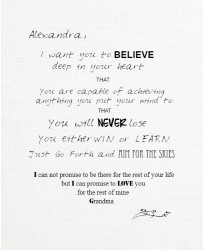 Alexandra,
I want you to BELIEVE
deep in your heart
THAT
You are capable of achieving
anything you put your mind to
THAT
You will NEVER lose
You either WIN or LEARN
Just Go Forth and AIM FOR THE SKIES
I can not promise to be there for the rest of your life
but I can promise to LOVE you
for the rest of mine
Grandma